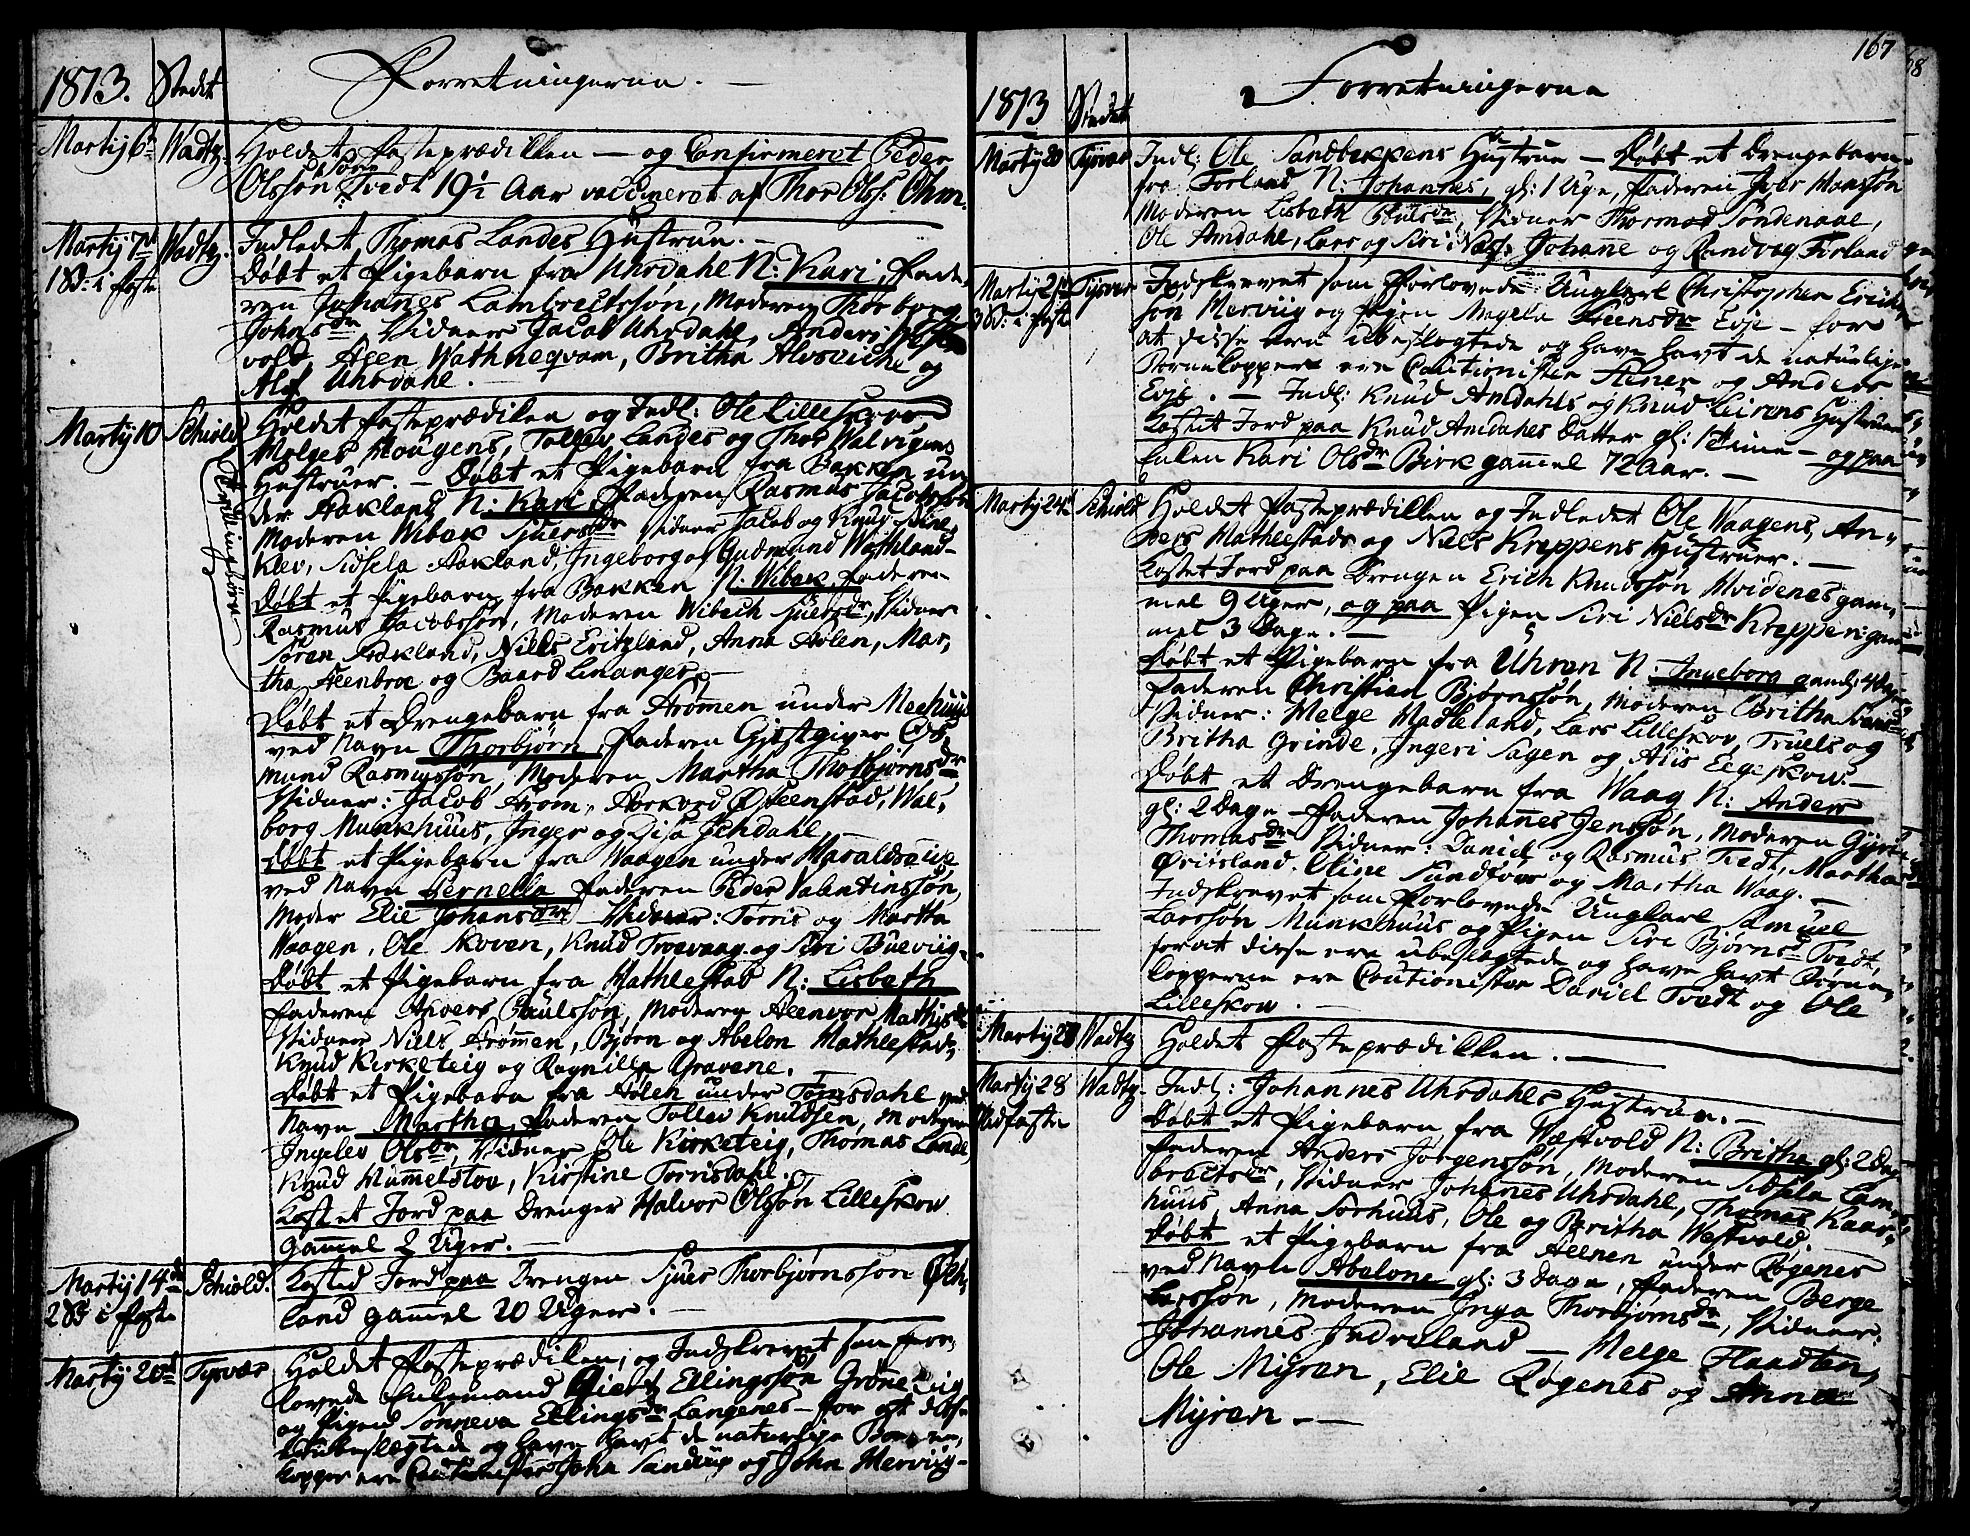 1813. Stedet Forretningerne. —
Martij 6te Wadtz. Holdet Fasteprædikken — og Confirmeret Peder
Olssøn Tvedt 19½ Aar vaccineret af Thor Olss: Ohm.
Martij 7d Wadtz. Indledet Thomas Landes Hustrue. —
1 Sd: i Faste Døbt et Pigebarn fra Uhrdahl N: Kari, Fade,
ren Johanes Lambrectssøn, Moderen Thorborg
Johnsdr, Vidner Jacob Uhrdahl, Anders
vold, Steen Wathneqvam, Britha Alvseiche og
Alis Uhrdahl. —
Martij 10 Schiold Holdet Fasteprædiken og Indl: Ole Lilleskovs
Helges Hougens, Tollev Landes og Thor Walvigens
Hustruer. — Døbt et Pigebarn fra Bakken un
der Aakland N: Kari, Faderen Rasmus Jacobssøn
Moderen Wibek Siversdr Vidner Jacob og Knud
klev, Sidsela Aakland, Ingeborg og Gudmund Wathland —
Tvillingebørn
Døbt et Pigebarn fra Bakken N: Wibek, Faderen
Rasmus Jacobssøn, Moderen Wibech Siversdr, Vidner
Søren Aakland, Niels Eritzland, Anna Aslen, Mar,
tha Steenbroe og Baard Linanger. —
Døbt et Drengebarn fra Strømmen under Meehuus
ved Navn Thorbjørn, Faderen Gjestgiver Os
mund Rasmussøn, Moderen Martha Thorbjørnsdr
Vidner: Jacob Strøm, Torkord Østeenstad, Wal,
borg Munkhuus, Inger og Disa Jehdahl —
Døbt et Pigebarn fra Waagen under Haraldseide
ved Navn Pernella Faderen Peder Valentinssøn,
Moder Elie Johansdr — Vidner: Torris og Martha
Waagen, Ole Skoven, Knud Troevaag og Siri Tueviig —
Døbt et Pigebarn fra Mathlestad N: Lisbeth
Faderen Anders Paulssøn, Moderen Steenvor Mathisdr
Vidner Niels Strømmen, Bjørn og Abelon Mathlestad,
Knud Kirketeig og Ragnilla Gravene.
Døbt et Pigebarn fra Aslen under Torrisdahl ved
Navn Martha, Faderen Tollev Knudsen, Moderen
Ingelev Olsdr, Vidner Ole Kirketeig, Thomas Lande,
Knud Hummelstov, Kirstine Torrisdahl.
Kastet Jord paa Drengen Halvor Olssøn Lilleskov
gammel 2 Uger. —
Martij 14de Schiold. Kasted Jord paa Drengen Siver Thorbjørnssøn
2 Sd i Faste land gammel 20 Uger. —
Martij 20d Tysvær Holdet Fasteprædiken, og Indskrevet som For,
lovede Enkemand Gjert Ellingssøn Grønneviig
og Pigen Sønneva Ellingsdr Langenes — for at disse
ere ubeslægtede og have havt de naturlige Børne,
kopper ere Cautionister John Sandeiip og John Merviig —
167
1813 Stedet Forretningerne
Martij 20 Tysvær Indl: Ole Sandbekkens Hustrue — Døbt et Drengebarn
fra Førland N: Johannes, gl: 1 Uge, Faderen Iver Hanssøn
Moderen Lisbeth Poulsdr, Vidner Thormod Søndenaae,
Ole Amdahl, Lars og Siri Næss Johanne og Randvag Førland
Martij 21de Tysvær Indskrevet som Forlovede Ungkarl Christopher Erichs
3 Sd: i Faste søn Merviig og Pigen Angela Steensdr Eeje — for
at disse ere ubeslægtede og have havt de naturlige
Børnekopper ere Cautionister Stener og Anders
Eeje. — Indl: Knud Amdahls og Knud Leirens Hustruer
Kastet Jord paa Knud Amdahls Datter gl: 1 Time — og paa
Enken Kari Olsdr Birk gammel 72 Aar. —
Martij 24de Schiold Holdet Fasteprædikken og Indledet Ole Waagens, An,
ders Mathlestads og Niels Kreppens Hustruer. —
Kastet Jord paa Drengen Erich Knudssøn Hvidenes gam,
mel 9 Uger, og paa Pigen Siri Nielsdr Kreppen gam
mel 3 Dage. —
Døbt et Pigebarn fra Uhren N: Ingeborg gaml: 4 Dage
Faderen Christian Bjørnssøn, Moderen Britha
Vidner: Helge Madleland, Lars Lilleskov, Truels og
Britha Grinde, Ingeri Sagen og Aliis Eegeskov. —
Døbt et Drengebarn fra Waag N: Anders
gl: 2 Dage — Faderen Johannes Jenssøn, Moderen Gyri
Thomasdr Vidner: Daniel og Rasmus Tvedt, Martha
Ørisland, Oline Sundfør og Martha Waag. —
Indskrevet som Forlovede Ungkarl Samuel
Larssøn Munkhuus og Pigen Siri Bjørnsd Tvedt,
for at disse ere ubeslægtede og have havt Børne,
kopperne ere Cautionister Daniel Tvedt og Ole
Lilleskov. —
Martij 28 Wadtz Holdet Fasteprædikken. —
Martij 28 Wadtz. Indl: Johannes Uhrdahls Hustrue. —
Midfaste Døbt et Pigebarn fra Wæstvold N: Britha gl: 2 Dag
Faderen Anders Jørgenssøn, Moderen Sidsela Lam,
brectsdr, Vidner Johanes Uhrdahl, Thomas Kaar,
huus, Anna Sørhuus, Ole og Britha Westvold.
Døbt et Pigebarn fra Steenen under Røgenes
ved Navn Abelone gl: 3 Dage, Faderen Berge
Larssøn, Moderen Inga Thorbjørnsdr, Vidner:
Johannes Indreland — Helge Flaadten,
Ole Myren, Elie Røgenes og Anna
Myren. —